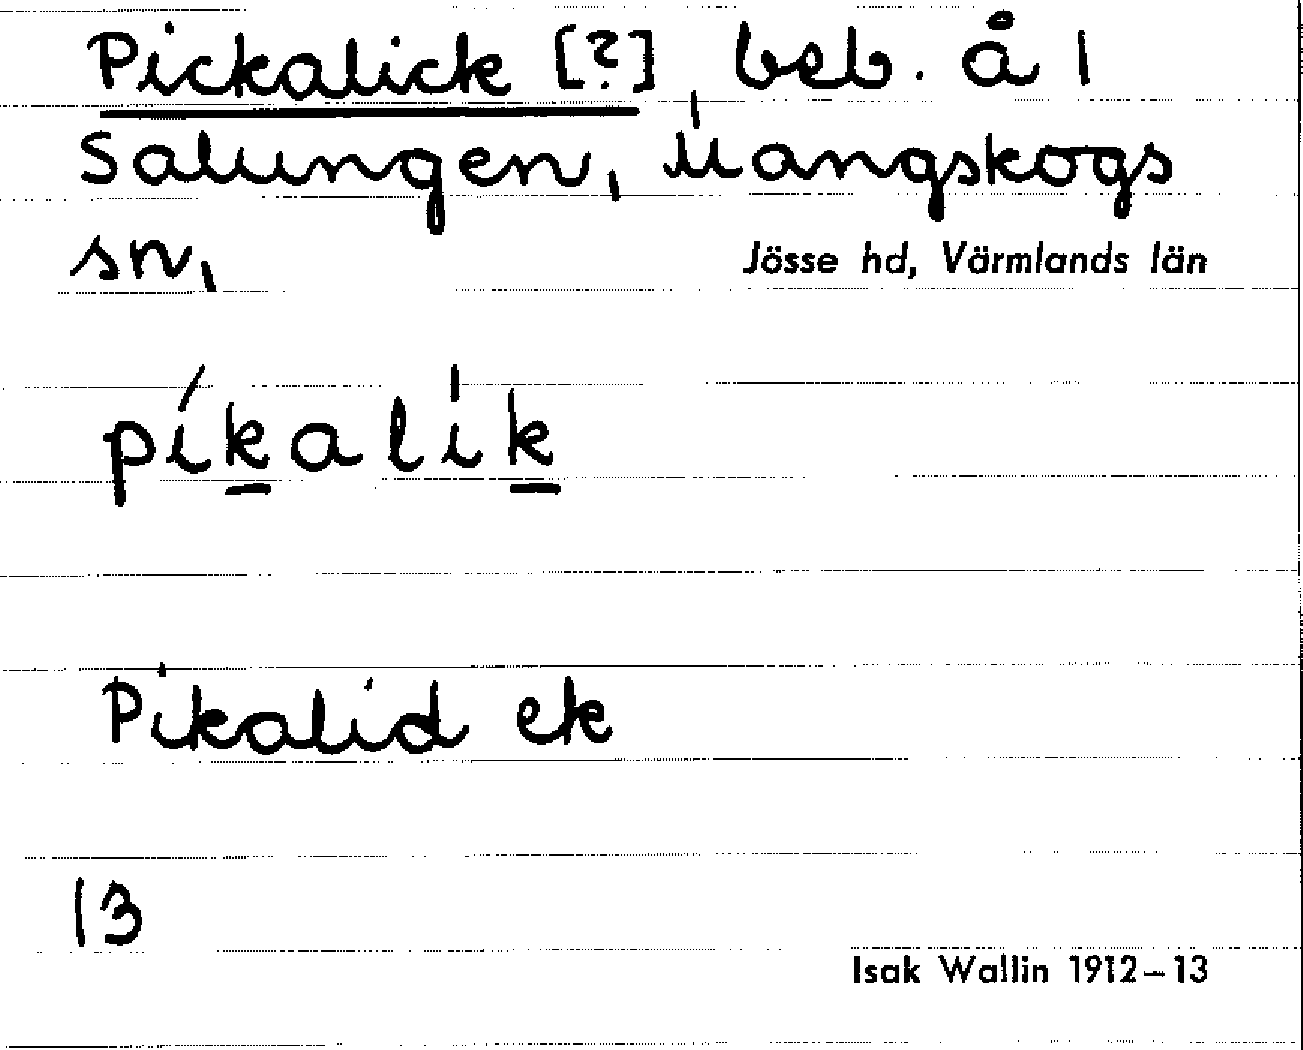 Pickalick [?], beb. å 1
Salungen, Mangskogs
sn, Jösse hd, Värmlands län
píkalik
Pikalid ek
13
Isak Wallin 1912–13